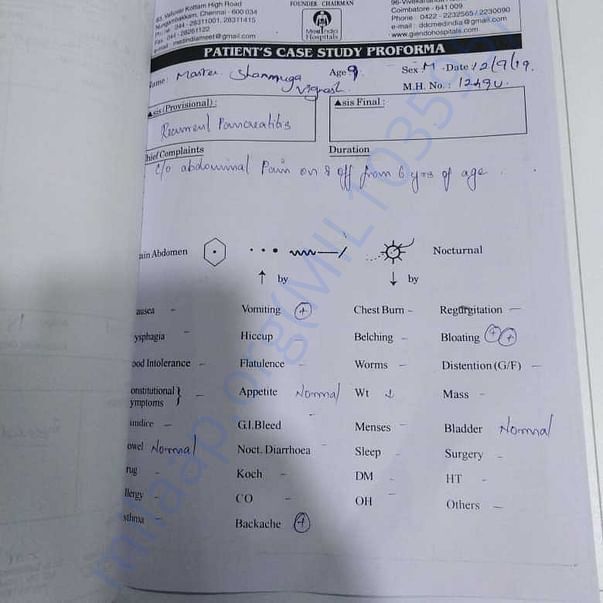 83, Valluvar Kottam High Road
Nungambakkam, Chennai - 600 034
Ph : 044 - 28311001, 28311415
Fax : 044 - 28261122
e-mail : medindiameet@gmail.com
FOUNDER CHAIRMAN
MedIndia
Hospitals
Coimbatore - 641 009
Phone : 0422 - 2232565 / 2230090
e-mail : ddcmedindia@gmail.com
www.giendohospitals.com
PATIENT'S CASE STUDY PROFORMA
ame : Master Shanmuga Vignesh Age 9 Sex M Date 12/9/19.
M.H. No. : 12490
▲sis (Provisional) : ▲sis Final :
Recurrent Pancreatitis
hief Complaints Duration
C/o abdominal Pain on & off from 6 yrs of age
ain Abdomen Nocturnal
↑ by ↓ by
ausea - Vomiting + Chest Burn - Regurgitation -
ysphagia - Hiccup Belching - Bloating ++
ood Intolerance - Flatulence - Worms - Distention (G/F) -
onstitutional } - Appetite Normal Wt ↓ Mass -
ymptoms
undice - G.I.Bleed - Menses - Bladder Normal
owel Normal Noct. Diarrhoea - Sleep - Surgery -
rug - Koch - DM - HT -
llergy - CO - OH - Others -
sthma - Backache +
milaap.org(MIL103595